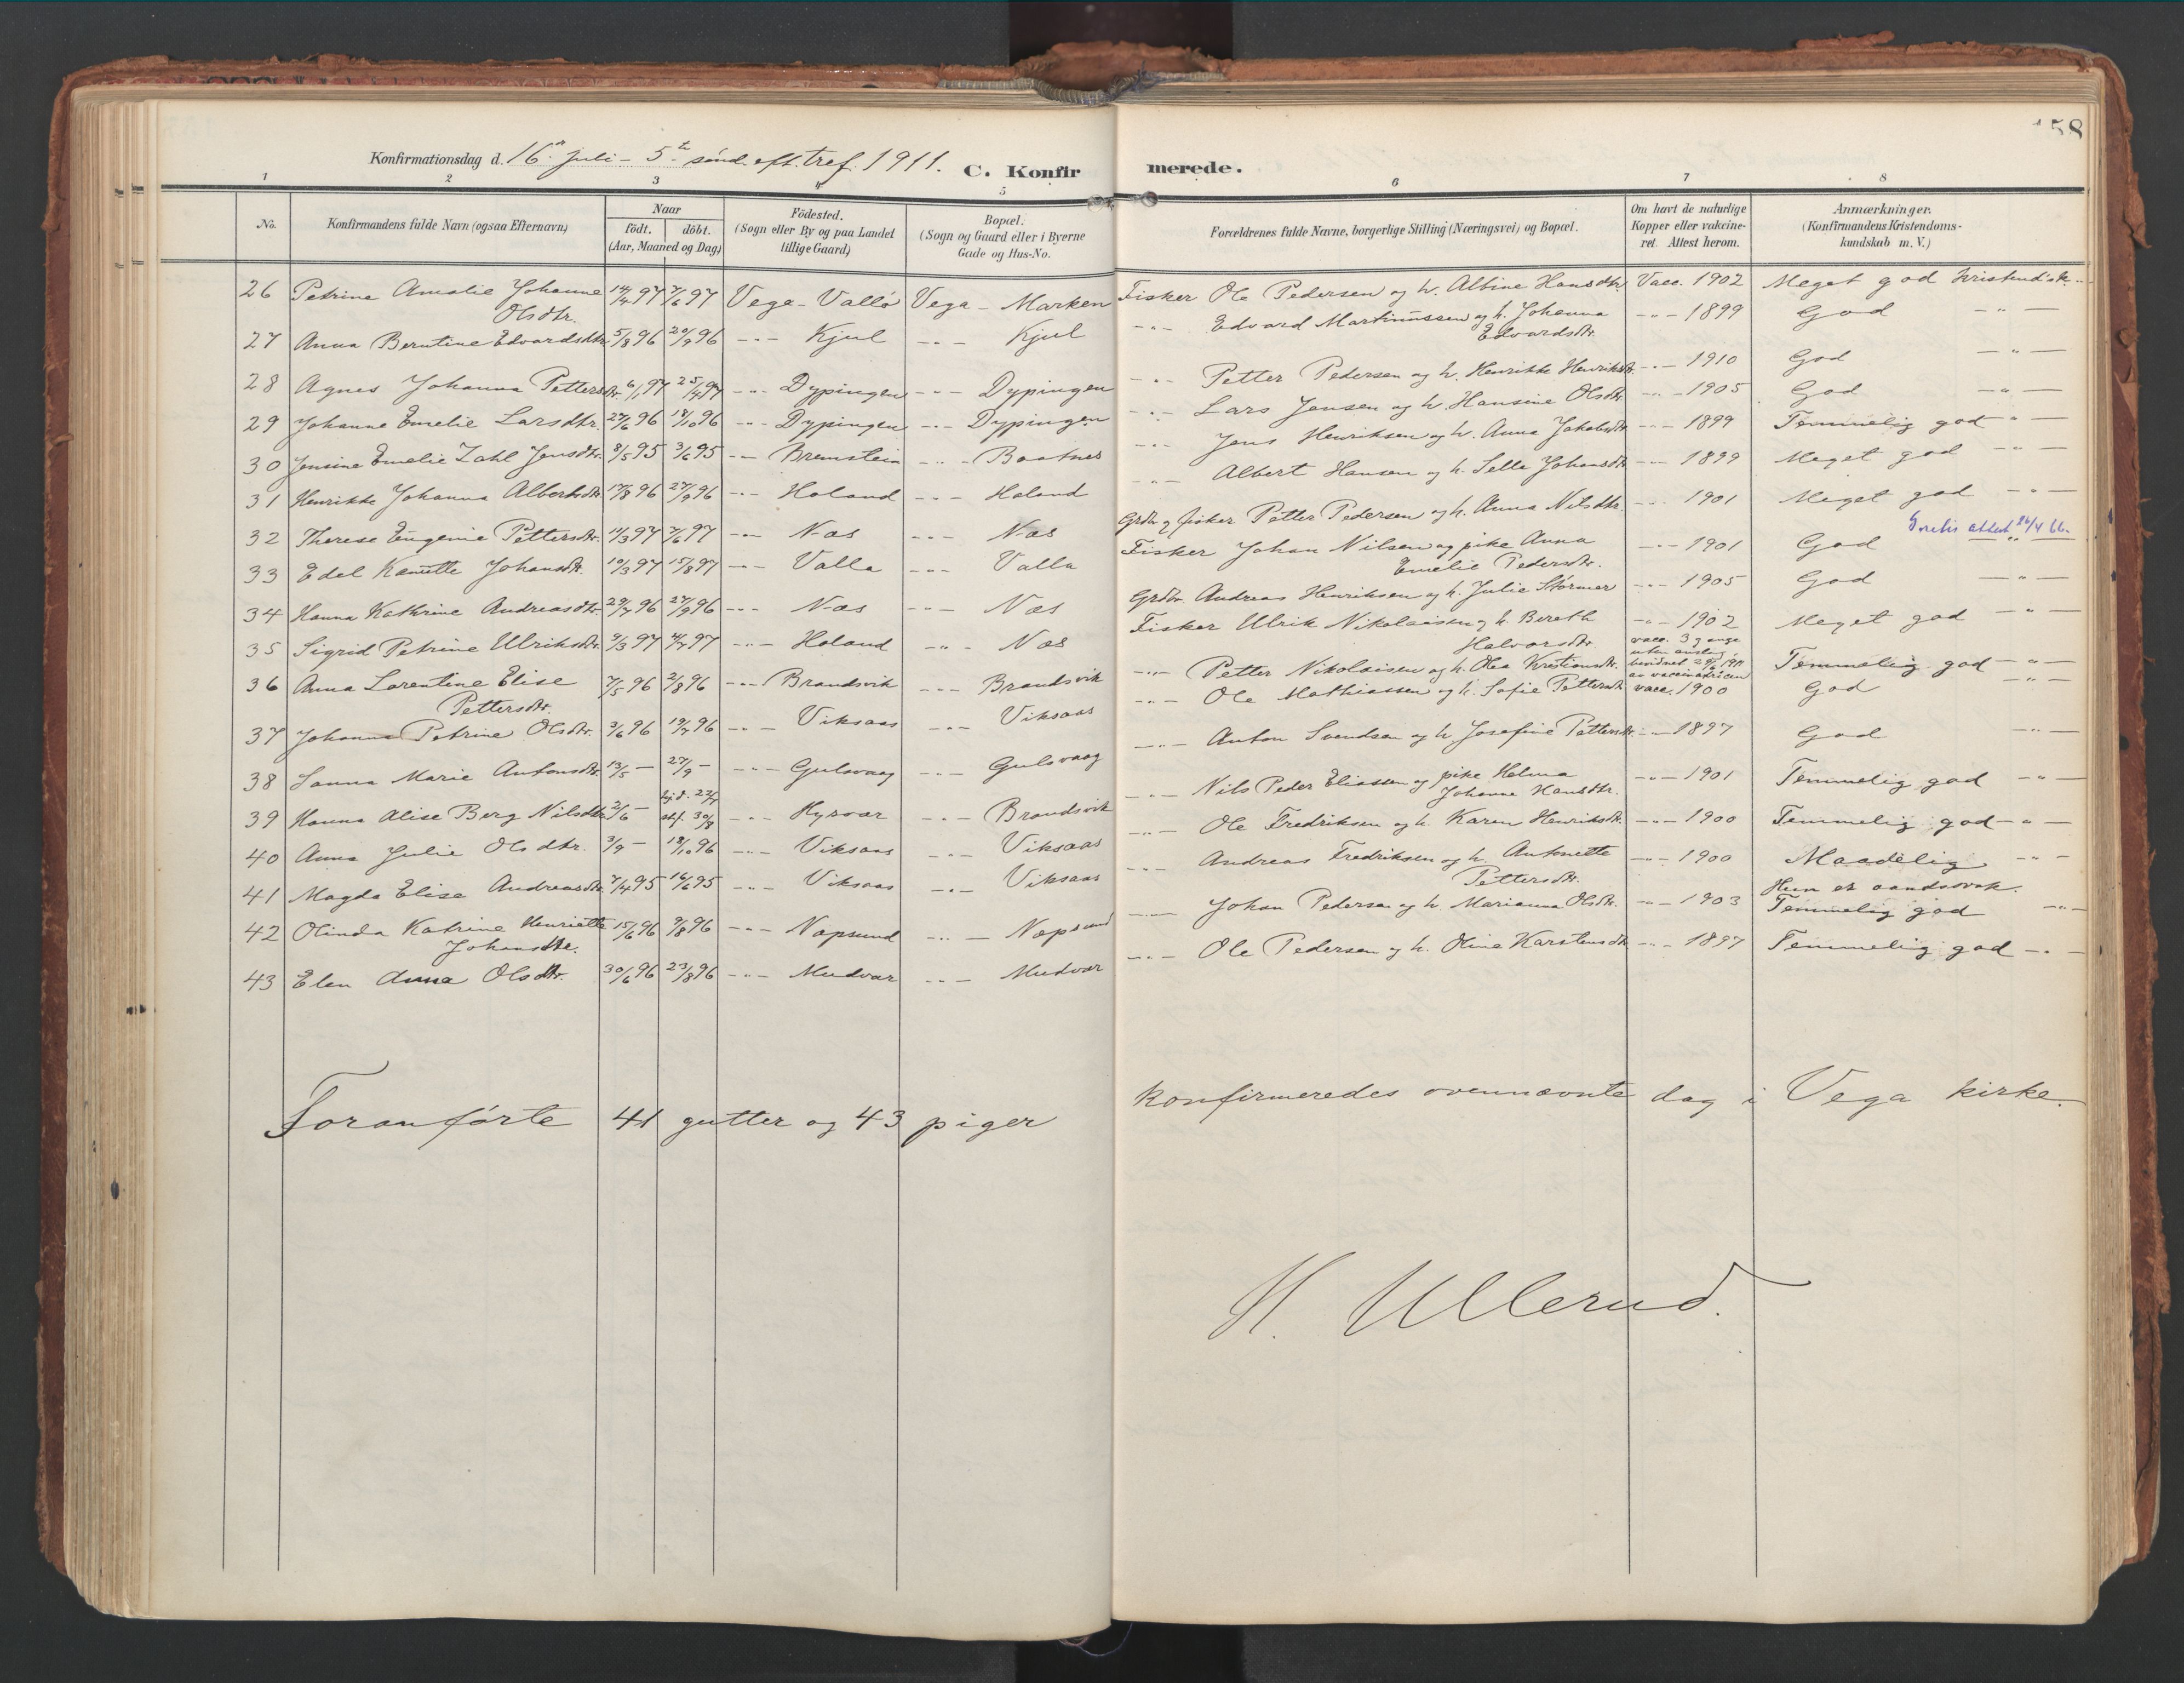 158
Konfirmationsdag d. 16de juli - 5te sønd. eft. tref. 1911. C. Konfirmerede.
1 2 3 4 5 6 7 8
No. Konfirmandens fulde Navn (ogsaa Efternavn) Naar født. døbt. (Aar, Maaned og Dag) Fødested. (Sogn eller By og paa Landet tillige Gaard) Bopæl. (Sogn og Gaard eller i Byerne Gade og Hus-No. Forældrenes fulde Navne, borgerlige Stilling (Næringsvei) og Bopæl. Om havt de naturlige Kopper eller vakcineret. Attest herom. Anmærkninger. (Konfirmandens Kristendomskundskab m. V.)
26 Petrine Amalie Johanne Olsdtr. 14/4 97 7/6 97 Vega - Vallø Vega - Marken Fisker Ole Pedersen og h. Albine Hansdtr. Vacc. 1902 Meget god kristend.sk.
27 Anna Berntine Edvardsdtr. 5/8 96 20/9 96 -"- Kjul -"- Kjul -"- Edvard Martinussen og h. Johanna Edvardsdtr. -"- 1899 God -"-
28 Agnes Johanna Pettersdtr. 6/1 97 25/4 97 -"- Dypingen -"- Dypingen -"- Petter Pedersen og h. Henrikke Henriksdtr. -"- 1910 God -"-
29 Johanne Emelie Larsdtr. 27/6 96 18/10 96 -"- Dypingen -"- Dypingen -"- Lars Jensen og h. Hansine Olsdtr. -"- 1905 God -"-
30 Jensine Emelie Zahl Jensdtr. 8/5 95 3/6 95 -"- Bremstein -"- Baatnes -"- Jens Henriksen og h. Anna Jakobsdtr. -"- 1899 Temmelig god -"-
31 Henrikke Johanna Albertsdtr. 17/8 96 27/9 96 -"- Holand -"- Holand -"- Albert Hansen og h. Selle Johansdtr. -"- 1899 Meget god -"-
32 Therese Eugenie Pettersdtr. 14/3 97 7/6 97 -"- Næs -"- Næs Grdbr. og fisker Petter Pedersen og h. Anna Nilsdtr. -"- 1901 Meget god -"-
Gratis attest 26/4 66.
33 Edel Kanutte Johansdtr. 10/3 97 15/8 97 -"- Valla -"- Valla Fisker Johan Nilsen og pike Anna Emelie Pedersdtr. -"- 1901 God -"-
34 Hanna Kathrine Andreasdtr. 29/7 96 27/9 96 -"- Næs -"- Næs Grdbr. Andreas Henriksen og h. Julie Størmer -"- 1905 God -"-
35 Sigrid Petrine Ulriksdtr. 9/3 97 4/7 97 -"- Holand -"- Næs Fisker Ulrik Nikolaisen og h. Bereth Halvorsdtr. -"- 1902 Meget god -"-
36 Anna Lorentine Elise Pettersdtr. 7/5 96 2/8 96 -"- Brandsvik -"- Brandsvik -"- Petter Nikolaisen og h. Olea Kristiansdtr. vacc. 3 gange uten anslag, bevidnet 29/6 1911 av vaccinatricen Temmelig god -"-
37 Johanna Petrine Olsdtr. 3/6 96 19/7 96 -"- Viksaas -"- Viksaas -"- Ole Mathiassen og h. Sofie Pettersdtr. vacc. 1900 God -"-
38 Sanna Marie Antonsdtr. 13/5 - 27/9 - -"- Gulsvaag -"- Gulsvaag -"- Anton Svendsen og h. Josefine Pettersdtr. -"- 1897 God -"-
39 Hanna Alise Berg Nilsdtr. 2/6 - hjd. 22/7 stf. 30/8 -"- Hysvær -"- Brandsvik -"- Nils Peder Eliassen og pike Helma Johanne Hansdtr. -"- 1901 Temmelig god -"-
40 Anna Julie Olsdtr. 3/9 - 18/10 96 -"- Viksaas -"- Viksaas -"- Ole Fredriksen og h. Karen Henriksdtr. -"- 1900 Temmelig god -"-
41 Magda Elise Andreasdtr. 7/4 95 16/6 95 -"- Viksaas -"- Viksaas -"- Andreas Fredriksen og h. Antonette Pettersdtr. -"- 1900 Maadelig -"- Hun er aandssvak.
42 Olinda Katrine Henriette Johansdtr. 15/6 96 9/8 96 -"- Napsund -"- Napsund -"- Johan Pedersen og h. Marianna Olsdtr. -"- 1903 Temmelig god -"-
43 Elen Anna Olsdtr. 30/6 96 23/8 96 -"- Mudvær -"- Mudvær -"- Ole Pedersen og h. Oline Karstensdtr. -"- 1897 Temmelig god -"-
Foranførte 41 gutter og 43 piger konfirmeredes ovennævnte dag i Vega kirke.
H. Ullerud.